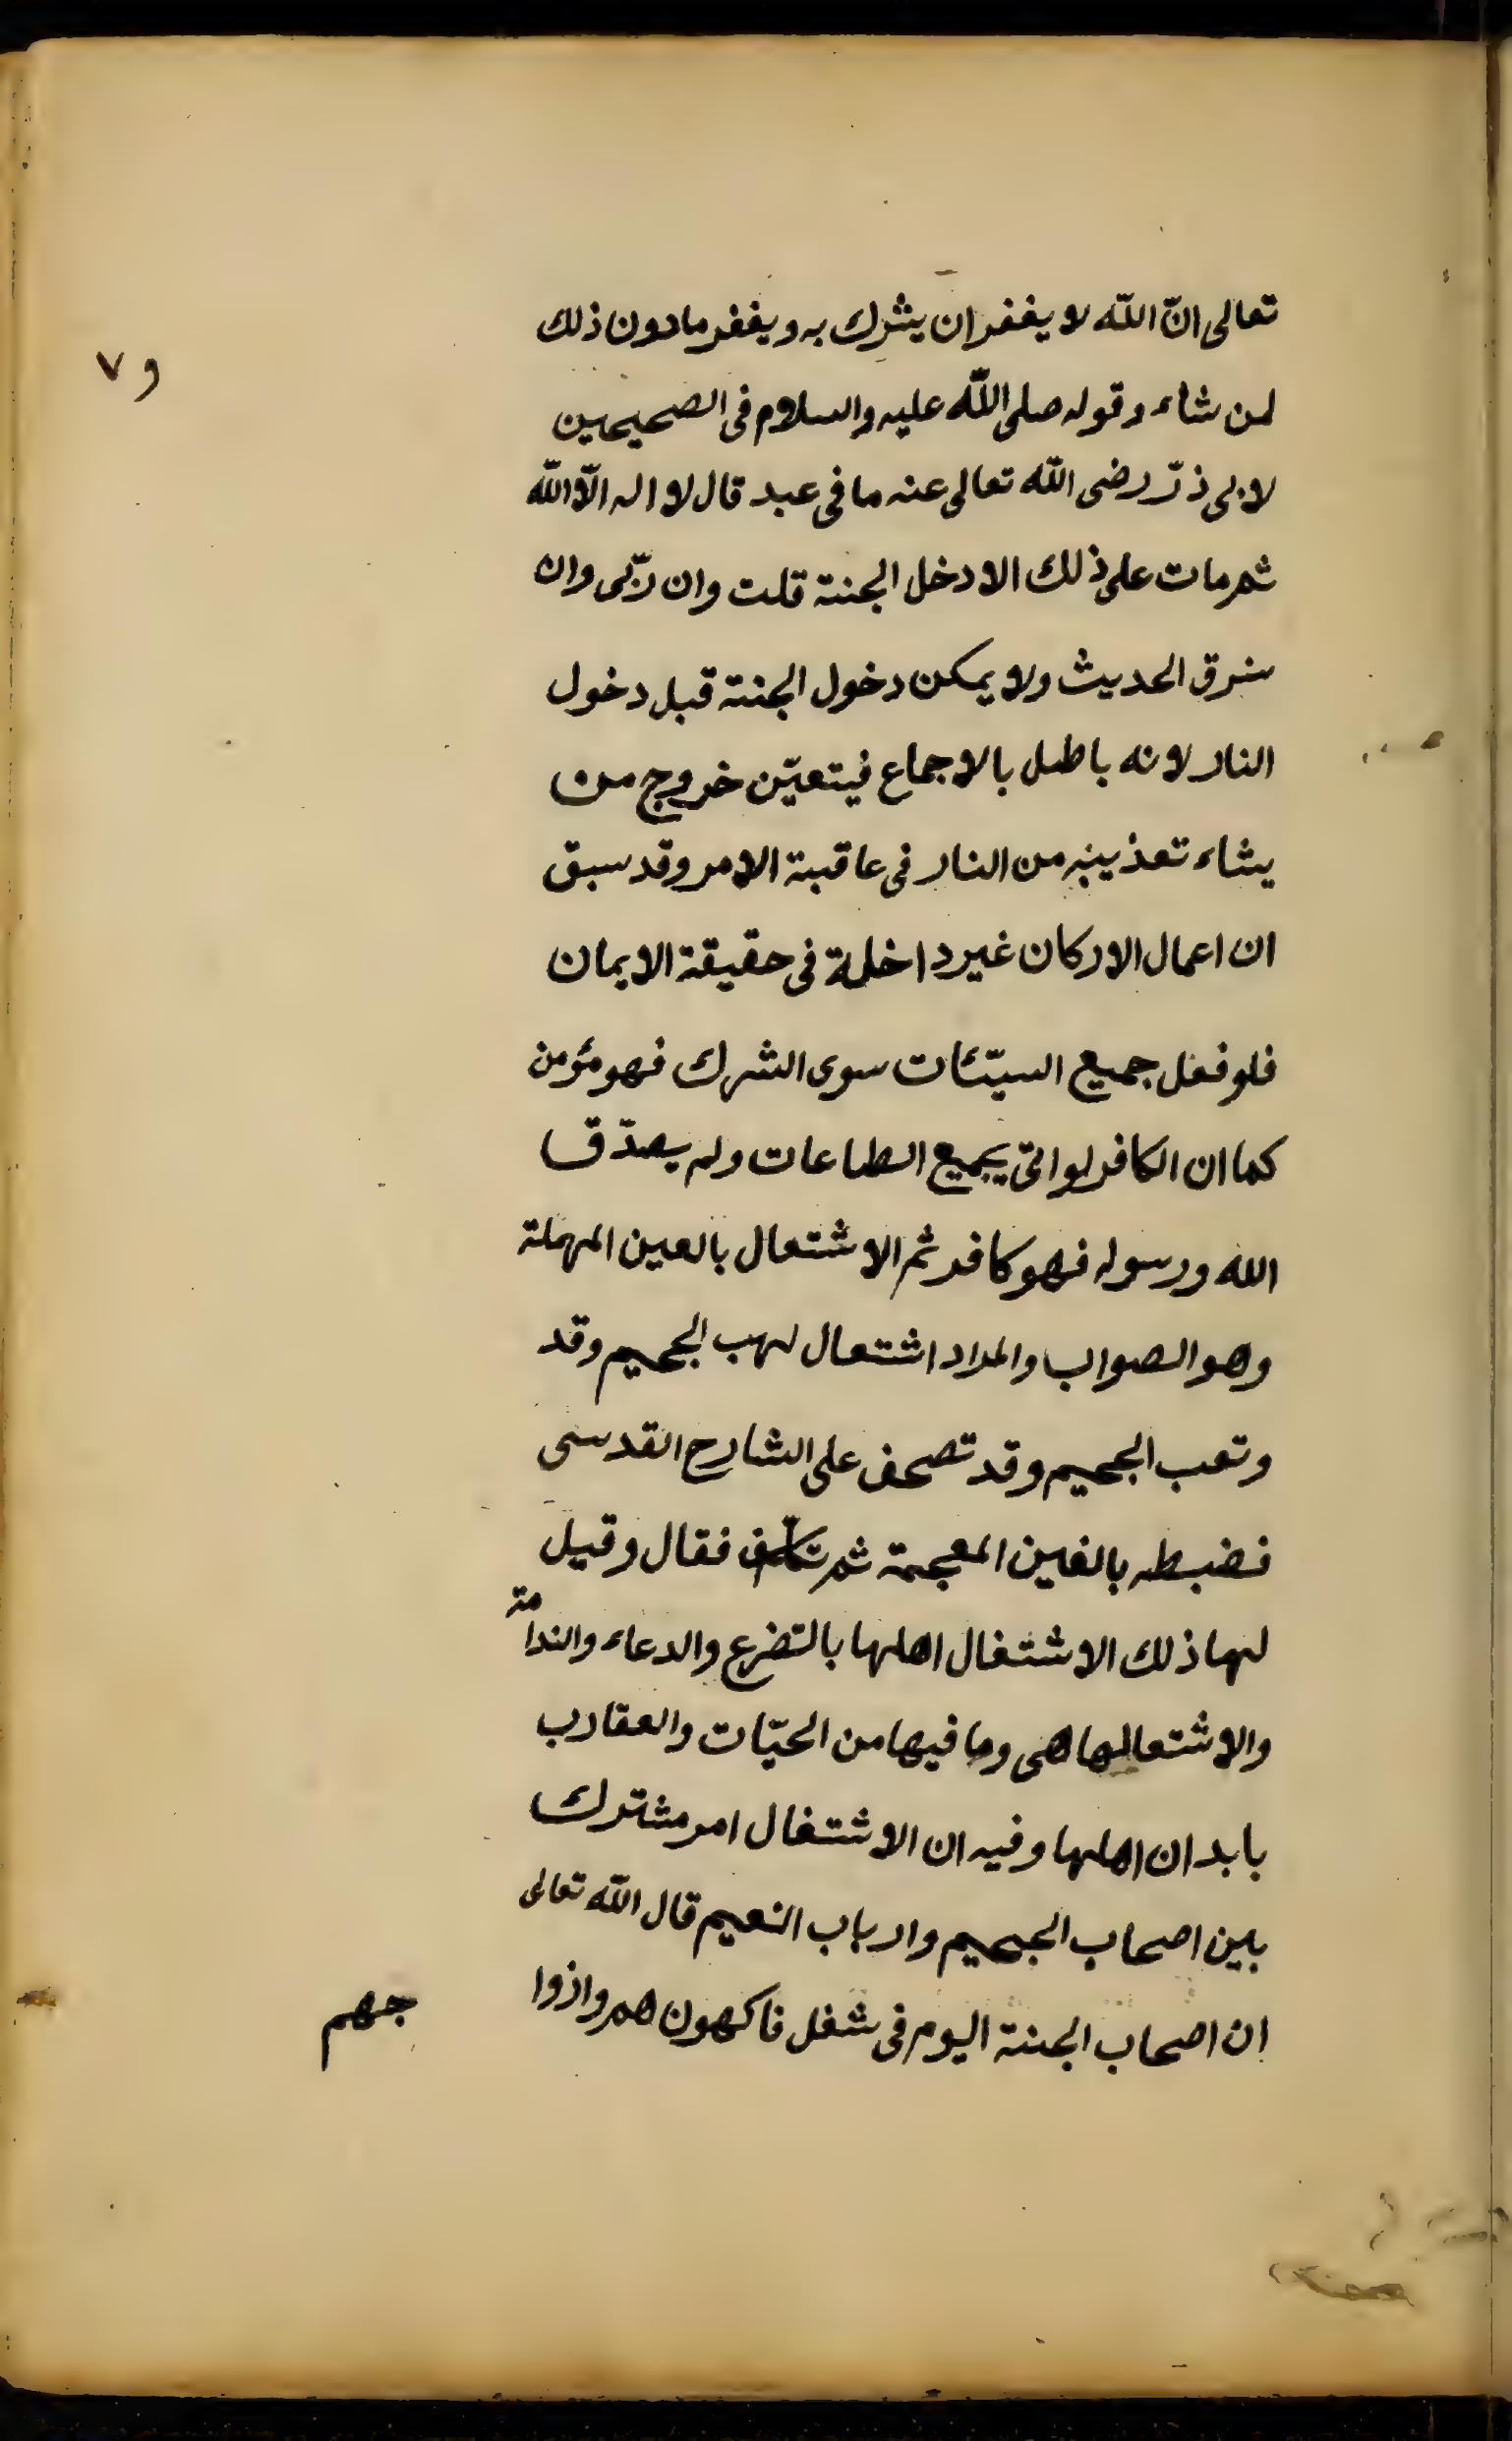 تعالى انّ اللّه لا يغفر ان يشرك به ويغفر مادون ذلك
و ٧
لمن شاء وقوله صلى اللّه عليه والسلام فى الصحيحين
لابى ذرّ رضى اللّه تعالى عنه ما فى عبد قال لا اله الّا اللّه
ثم مات على ذلك الا دخل الجنة قلت وان زنى وان
سرق الحديث ولا يمكن دخول الجنة قبل دخول
النار لانه باطل بالاجماع فيتعيّن خروج من
يشاء تعذيبه من النار فى عاقبة الامر وقد سبق
ان اعمال الاركان غير داخلة فى حقيقة الايمان
فلو فعل جميع السيّئات سوى الشرك فهو مؤمن
كما ان الكافر لو اتى بجميع الطاعات ولم يصدّق
الله ورسوله فهو كافر ثم الاشتعال بالعين المهملة
وهو الصواب والمراد اشتعال لهب الجحيم وقد
وتعب الجحيم وقد تصحف على الشارح القدسى
فضبطه بالغين المعجمة ثم تكلف فقال وقيل
لهما ذلك الاشتغال اهلها بالتضرع والدعاء والندامة
والاشتعالها هى وما فيها من الحيّات والعقارب
بابدان اهلها وفيه ان الاشتغال امر مشترك
بين اصحاب الجحيم وارباب النعيم قال اللّه تعالى
ان اصحاب الجنة اليوم فى شغل فاكهون هم وازوا
جهم